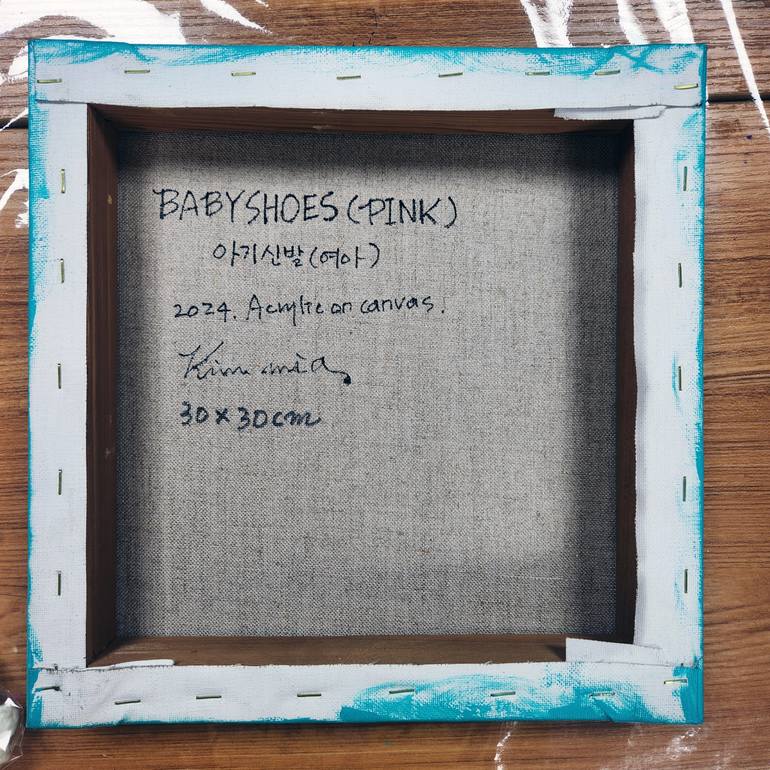 BABYSHOES (PINK)
아기신발(여아)
2024. Acrylic on canvas.
Kim
30 x 30 cm